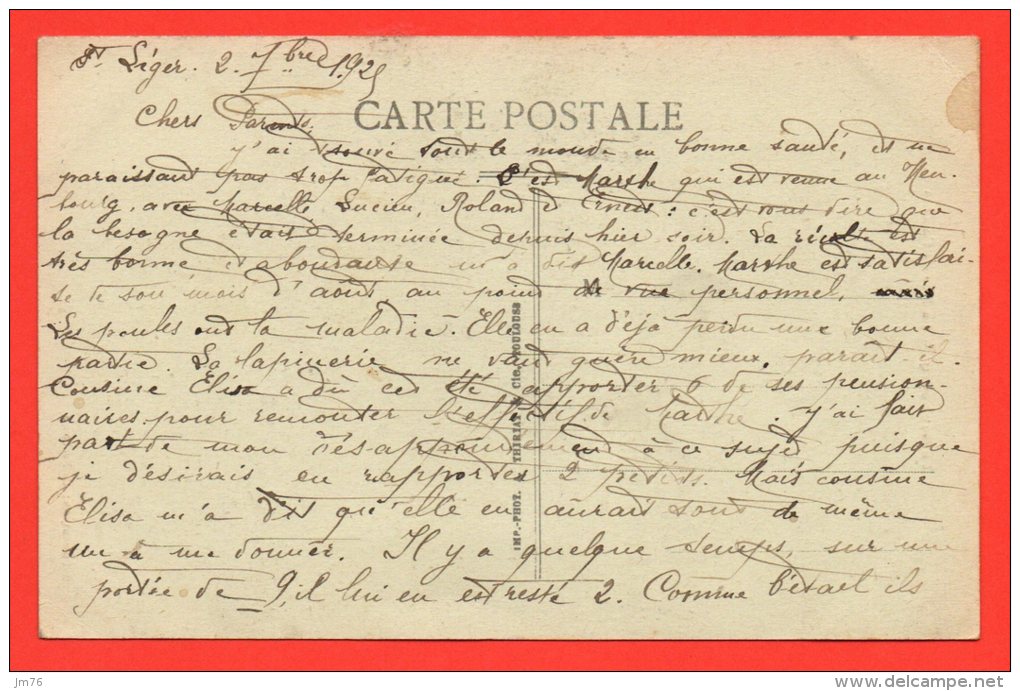 St Léger. 2. 7bre 1925
CARTE POSTALE
Chers Parents.
J'ai trouvé tout le monde en bonne santé, et ne
paraissant pas trop fatigué. C'est Marthe qui est venue au Neu-
bourg, avec Marcelle, Lucien, Roland et Ernest : c'est vous dire que
la besogne était terminée depuis hier soir. La récolte est
très bonne et abondante m'a dit Marcelle. Marthe est satisfai-
te de son mois d'août au point de vue personnel.
Les poules ont la maladie. Elle en a déjà perdu une bonne
partie. La lapinerie ne vaut guère mieux, paraît-il.
Cousine Elisa a dû cet été apporter 6 de ses pension-
naires pour remonter l'effectif de Marthe. J'ai fait
part de mon désappointement à ce sujet puisque
je désirais en rapporter 2 petits. Mais cousine
Elisa m'a dit qu'elle en aurait tout de même
un à me donner. Il y a quelque temps, sur une
portée de 9, il lui en est resté 2. Comme c'était ils
IMP.-PHOT. THIRIAT & Cie, TOULOUSE
jm76
delcampe.net